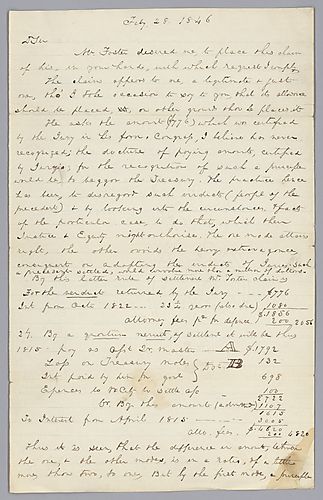 Feby 28. 1846
D Sir
Mr Foster desired me to place this claim
of his in your hands, with which request I comply
The claim appears to me, a legitimate & just
one, tho' I take occasion to say to you that its allowance
should be placed on other ground than he places it
He asks the amount ($776) which was certified
by the Jury in his favor. Congress, I believe has never
recognized the doctrine of paying amounts, certified
by Juries; for the recognition of such a principle
would be to beggar the Treasury. The practice hence
has been, to disregard such verdicts (
precedent) & to looking into the circumstances & facts
of the particular case, to do that, which then
Justice & Equity might authorise. The one mode allows
right, the other avoids the heavy extravagance
consequent on adopting the verdicts of Juries. Such
a precedent settled, would involve more than a million of dollars.
By this latter rule of settlement Mr. Foster claims
For the verdict returned by the Jury $776
Int from Octr 1822 — 23 ½ years (
1080
$1856
attorney fees pd for defence 200 2056
2d. By a quantum meruit of settlement it will be thus
1815 — pay as Asst Dr. Master — A $1792
Loss on Treasury notes Doc. B 132
Int paid by do for govt 698
Expenses to W City to settle a/c 100
2722
Cr. By this amount (advanced) 1107
1615
To Interest from April 1815 — 3005
$4620
Atto. fees. 200 4820
Thus it is seen, that the difference in amount, between
the one, & the other modes, is in a ratio, of a little
more than two, to one, But by the first mode, a principle